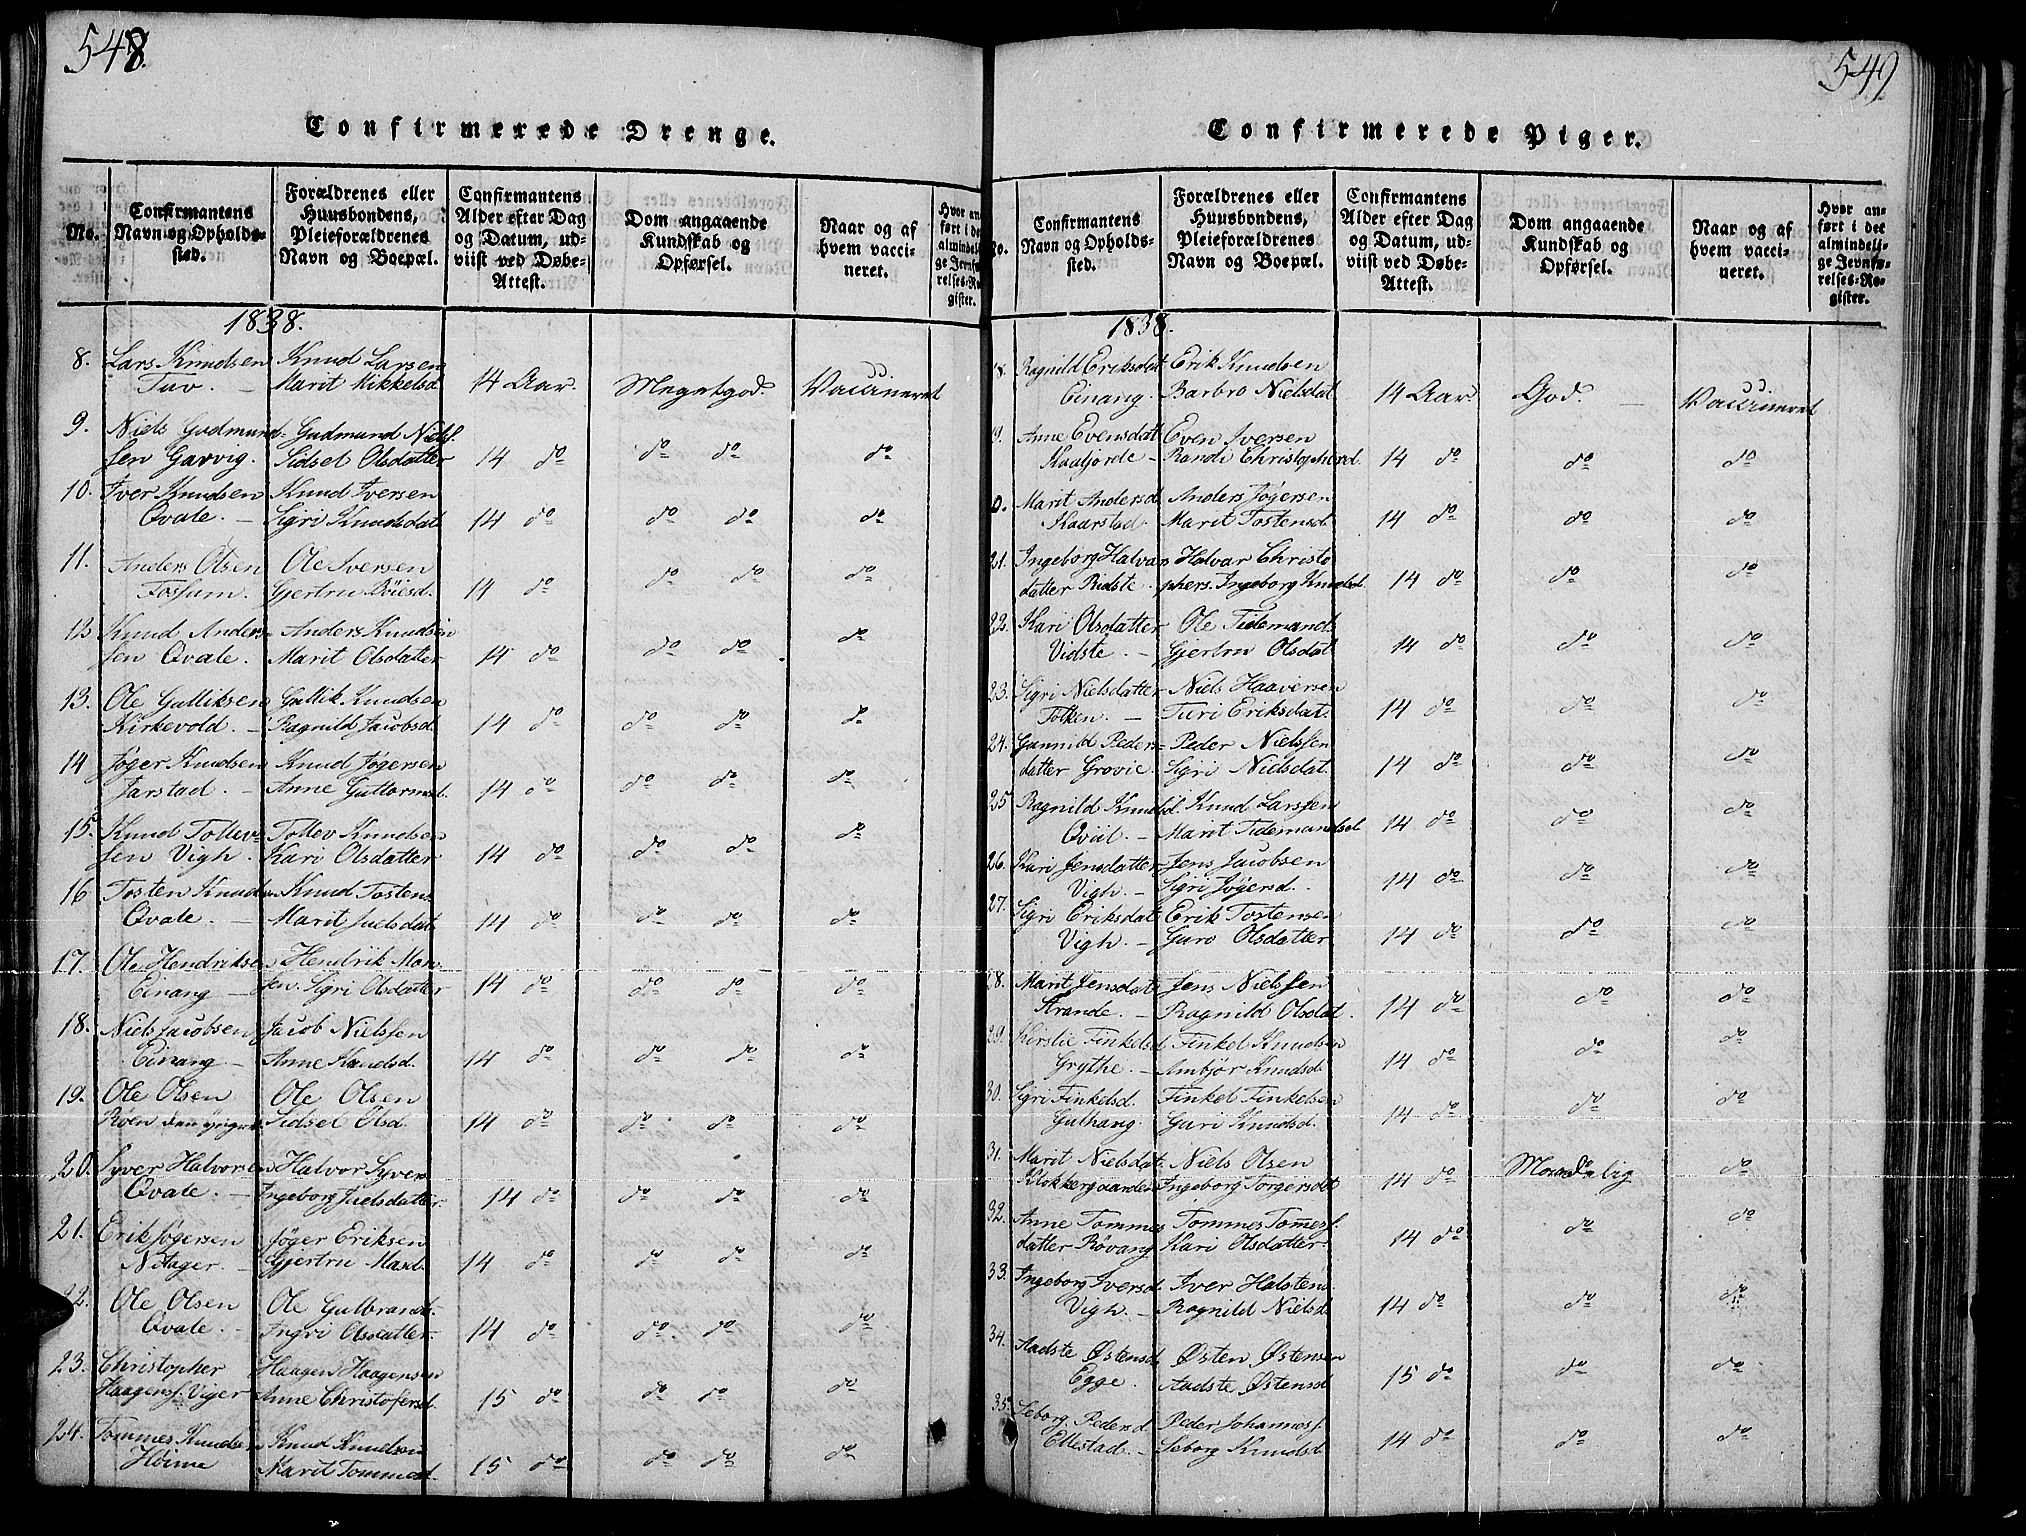 548.
Confirmerede Drenge.
No.
Confirmantens
Navn og Opholds-
sted.
Forældrenes eller
Huusbondens,
Pleieforældrenes
Navn og Boepæl.
Confirmantens
Alder efter Dag
og Datum, ud-
viist ved Døbe-
Attest.
Dom angaaende
Kundskab og
Opførsel.
Naar og af
hvem vacci-
neret.
Hvor an-
ført i det
almindeli-
ge Jevnfø-
relses-Re-
gister.
1838.
8. Lars Knudsen Knud Larsen
Tuv. - Marit Mikkelsd. 14 Aar. Megetgod. Vaccineret
9. Niels Gudmund- Gudmund Niels.
sen Garvig. Sidsel Olsdatter 14 do do do do
10. Iver Knudsen Knud Iversen
Qvale. - Sigri Knudsdat. 14 do do do do
11. Anders Olsen Ole Iversen
Fossum. Gjertru Bøiesd. 14 do do do do
12 Knud Anders- Anders Knudsen
sen Qvale. Marit Olsdatter 14 do do do do
13. Ole Gulliksen Gullik Knudsen
Kirkevold. - Ragnild Jacobsd. 14 do do do do
14 Jøger Knudsen Knud Jøgersen
Jarstad. - Anne Guttormsd. 14 do do do do
15. Knud Tollev- Tollev Knudsen
sen Vigh. Kari Olsdatter 14 do do do do
16 Tosten Knudsen Knud Tostens.
Qvale. - Marit Juelsdat. 14 do do do do
17. Ole Hendriksen Hendrik Mon-
Einang - sen. Sigri Olsdatter 14 do do do do
18. Niels Jacobsen Jacob Nielsen
Einang - Anne Knudsd. 14 do do do do
19. Ole Olsen Ole Olsen
Røen den yngre Sidsel Olsd. 14 do do do do
20. Syver Halvorsen Halvor Syvers.
Qvale. - Ingeborg Juelsdatter. 14 do do do do
21. Erik Jøgersen Jøger Eriksen
Nitager. - Gjertru 14 do do do do
22. Ole Olsen Ole Gulbrands.
Qvale. - Ingri Olsdatter 14 do do do do
23. Christopher Haagen Haagensen
Haagens. Viger Anne Christofersd. 15 do do do do
24. Tommes Knudsen Knud Knudsen
Høime Marit Tommesd. 15 do do do do
549
Confirmerede Piger.
No.
Confirmantens
Navn og Opholds-
sted.
Forældrenes eller
Huusbondens,
Pleieforældrenes
Navn og Boepæl.
Confirmantens
Alder efter Dag
og Datum, ud-
viist ved Døbe-
Attest.
Dom angaaende
Kundskab og
Opførsel.
Naar og af
hvem vacci-
neret.
Hvor an-
ført i det
almindeli-
ge Jevnfø-
relses-Re-
gister.
1838.
18. Ragnild Eriksdat Erik Knudsen
Einang. Barbro Nielsdat 14 Aar God. - Vaccineret
9. Anne Evensdat Even Iversen
- Randi Christophersd. 14 do do do
0. Marit Andersd. Anders Jøgersen
Kaarstad. Marit Tostensd. 14 do do do
21. Ingeborg Halvars Halvar Christo
datter Ridste. phers. Ingeborg Knudsd. 14 do do do
22. Kari Olsdatter Ole Tidemands.
Vidste. - Gjertru Olsdat 14 do do do
23. Sigri Nielsdatter Niels Haaversen
Tolken. - Turi Eriksdat. 14 do do do
24. Gunnild Peders- Peder Nielsen
datter Grovie. Sigri Nielsdat. 14 do do do
25 Ragnild Knudsd. Knud Larssen
Qviil. - Marit Tidemandsd. 14 do do do
26. Kari Jensdatter Jens Jacobsen
Vigh. - Sigri Jøgersd. 14 do do do
27. Sigri Eriksdat. Erik Tostensen
Vigh. - Guro Olsdatter 14 do do do
28. Marit Jensdat. Jens Nielssen
Strande. - Ragnild Olsdat. 14 do do do
29. Kirstie Finkelsd. Finkel Knudsen
Grythe. - Ambjør Knudsd. 14 do do do
30. Sigri Finkelsd. Finkel Finkelsen
Gulhang. Guri Knudsd. 14 do do do
31. Marit Nielsdat. Niels Olsen
Klokkergaarden Ingeborg Torgersdat 14 do do
32. Anne Tommes Tommes Tommess.
datter Røvang Kari Olsdatter. 14 do do do
33. Ingeborg Iversd. Iver Halstens.
Vigh. - Ragnild Nielsd. 14 do do do
34. Aadste Østensd. Østen Østensen
Egge. Aadste Østensd. 15 do do do
35. Seborg Pedersd Peder Johannes.
Ellestad. - Seborg Knudsd. 14 do do do